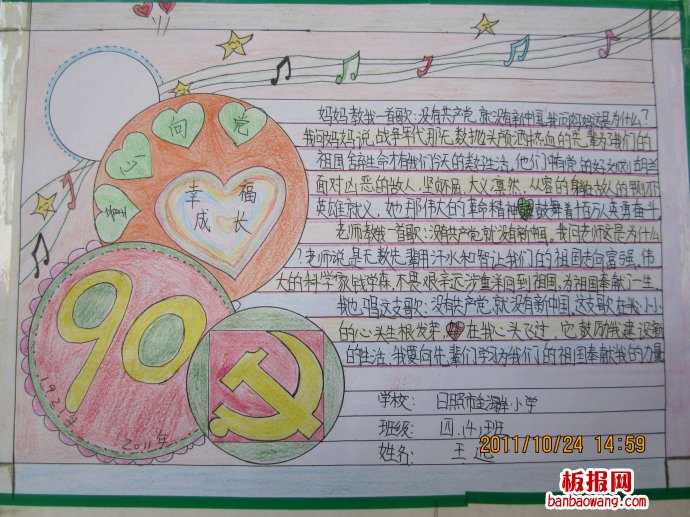 童心向党
幸福
成长
90
1921年
2011年
妈妈教我一首歌:没有共产党,就没有新中国。我问妈妈这是为什么?
我问妈妈说,战争年代那无数抛头颅洒热血的先辈为我们的
祖国舍生命才有我们今天的美好生活。他们中有党的好女儿刘胡兰
面对凶恶的敌人,坚贞不屈,大义凛然,从容的
英雄就义,她那伟大的革命精神鼓舞着千百万人英勇奋斗。
老师教我一首歌:没有共产党,就没有新中国。我问老师这是为什么
?老师说是无数先辈用汗水和智让我们的祖国走向富强。伟
大的科学家钱学森,不畏艰辛远涉重洋回到祖国,为祖国奉献了一生。
我也唱这支歌:没有共产党,就没有新中国。这支歌在我小小
的心头生根发芽,在我心头飞过,它鼓励我建设新
的生活,我要向先辈们学习为我们的祖国奉献我的力量
学校:日照市金海小学
班级:四.(4)班
姓名:王
2011/10/24 14:59
板报网
banbaowang.com